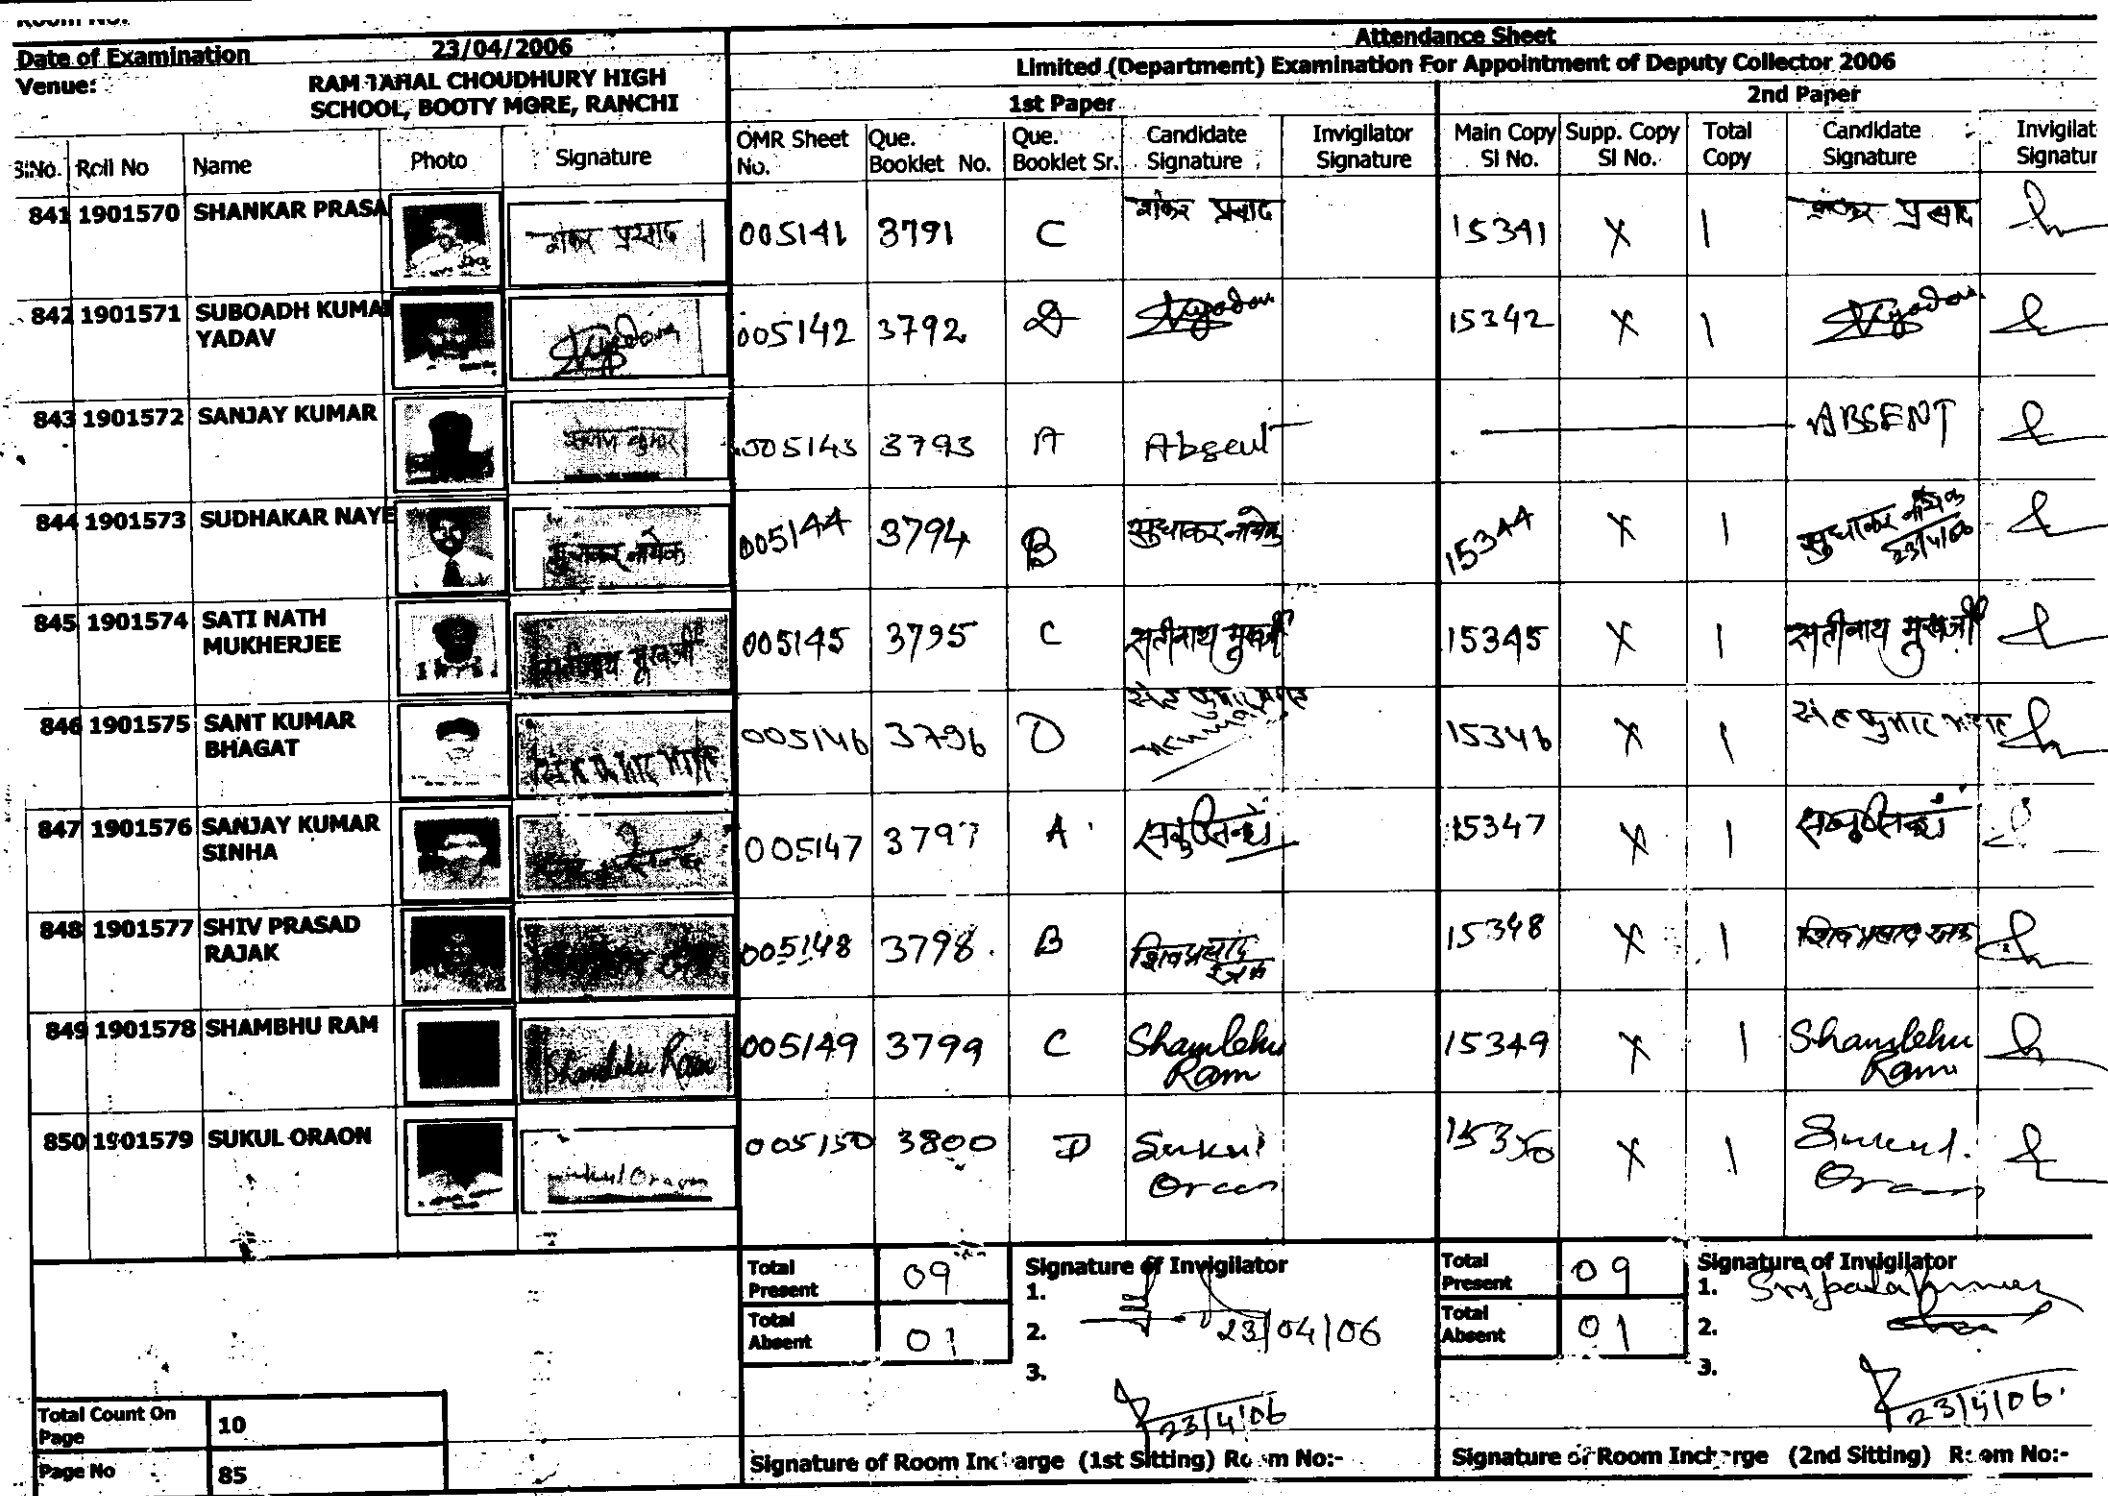 Date of Examination 23/04/2006
Venue: RAM TAHAL CHOUDHURY HIGH
SCHOOL, BOOTY MORE, RANCHI
Attendance Sheet
Limited (Department) Examination For Appointment of Deputy Collector 2006
1st Paper 2nd Paper
Sl.No. Roll No Name Photo Signature OMR Sheet No. Que. Booklet No. Que. Booklet Sr. Candidate Signature Invigilator Signature Main Copy Sl No. Supp. Copy Sl No. Total Copy Candidate Signature Invigilat Signatur
841 1901570 SHANKAR PRASA शंकर प्रसाद 005141 3791 C शंकर प्रसाद 15341 X 1 शंकर प्रसाद
842 1901571 SUBOADH KUMAR
YADAV 005142 3792 D 15342 X 1
843 1901572 SANJAY KUMAR 005143 3793 A Absent ABSENT
844 1901573 SUDHAKAR NAYE सुधाकर नायेक 005144 3794 B सुधाकर नायेक 15344 X 1 सुधाकर नायेक
23/4/06
845 1901574 SATI NATH
MUKHERJEE सतीनाथ मुखर्जी 005145 3795 C सतीनाथ मुखर्जी 15345 X 1 सतीनाथ मुखर्जी
846 1901575 SANT KUMAR
BHAGAT संत कुमार भगत 005146 3796 D संत कुमार भगत 15346 X 1 संत कुमार भगत
847 1901576 SANJAY KUMAR
SINHA 005147 3797 A 15347 X 1
848 1901577 SHIV PRASAD
RAJAK 005148 3798 B शिव प्रसाद रजक 15348 X 1 शिव प्रसाद रजक
849 1901578 SHAMBHU RAM Shambhu Ram 005149 3799 C Shambhu Ram 15349 X 1 Shambhu Ram
850 1901579 SUKUL ORAON Sukul Oraon 005150 3800 D Sukul Oraon 15350 X 1 Sukul Oraon
Total Present 09 Signature of Invigilator Total Present 09 Signature of Invigilator
1. 1.
Total Absent 01 2. 23/04/06 Total Absent 01 2.
3. 3.
23/4/06 23/4/06.
Total Count On Page 10
Page No 85
Signature of Room Incharge (1st Sitting) Room No:- Signature of Room Incharge (2nd Sitting) Room No:-